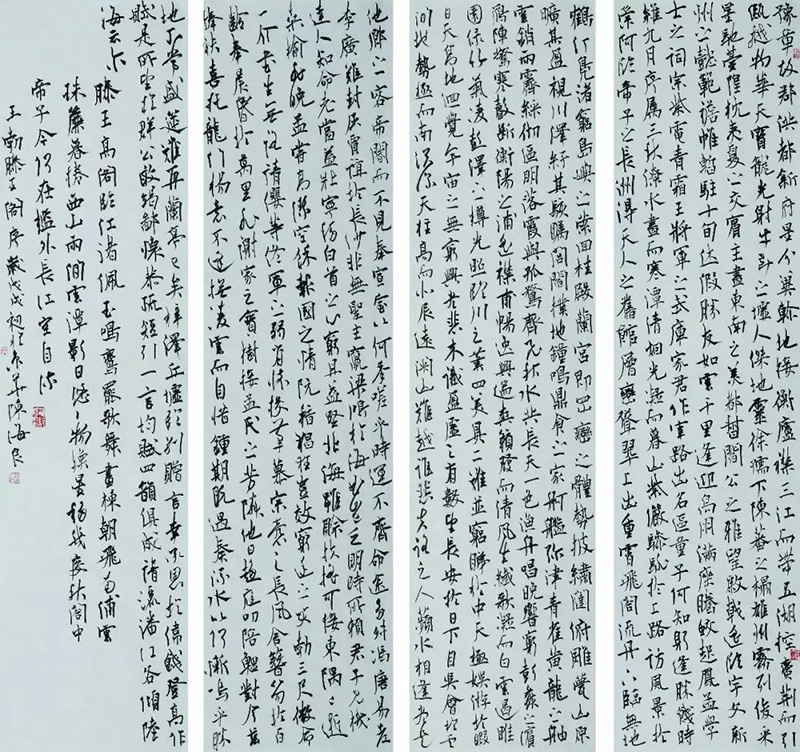 豫章故郡洪都新府星分翼軫地接衡廬襟三江而帶五湖控蠻荊而引
甌越物華天寶龍光射牛斗之墟人傑地靈徐孺下陳蕃之榻雄州霧列俊采
星馳臺隍枕夷夏之交賓主盡東南之美都督閻公之雅望棨戟遙臨宇文新
州之懿範襜帷暫駐十旬休假勝友如雲千里逢迎高朋滿座騰蛟起鳳孟學
士之詞宗紫電青霜王將軍之武庫家君作宰路出名區童子何知躬逢勝餞時
維九月序屬三秋潦水盡而寒潭清煙光凝而暮山紫儼驂騑於上路訪風景於
崇阿臨帝子之長洲得天人之舊館層巒聳翠上出重霄飛閣流丹下臨無地
鶴汀鳧渚窮島嶼之縈回桂殿蘭宮即岡巒之體勢披繡闥俯雕甍山原
曠其盈視川澤紆其駭矚閭閻撲地鐘鳴鼎食之家舸艦彌津青雀黃龍之舳
雲銷雨霽綵徹區明落霞與孤鶩齊飛秋水共長天一色漁舟唱晚響窮彭蠡之濱
雁陣驚寒聲斷衡陽之浦遙襟甫暢逸興遄飛爽籟發而清風生纖歌凝而白雲遏睢
園綠竹氣凌彭澤之樽光照臨川之筆四美具二難並窮睇眄於中天極娛游於暇
日天高地迥覺宇宙之無窮興盡悲來識盈虛之有數望長安於日下目吳會於雲
間地勢極而南溟深天柱高而北辰遠關山難越誰悲失路之人萍水相逢盡是
他鄉之客帝閽而不見奉宣室以何年嗟乎時運不齊命途多舛馮唐易老
李廣難封屈賈誼於長沙非無聖主竄梁鴻於海曲豈乏明時所賴君子見機
達人知命老當益壯寧移白首之心窮且益堅北海雖賒扶搖可接東隅已逝
桑榆非晚孟嘗高潔空餘報國之情阮籍猖狂豈效窮途之哭勃三尺微命
一介書生無路請纓等終軍之弱冠有懷投筆慕宗愨之長風舍簪笏於百
齡奉晨昏於萬里非謝家之寶樹接孟氏之芳鄰他日趨庭叨陪鯉對今茲
捧袂喜托龍門楊意不逢撫凌雲而自惜鍾期既遇奏流水以何慚嗚乎勝
地不常盛筵難再蘭亭已矣梓澤丘墟臨別贈言幸承恩於偉餞登高作
賦是所望於群公敢竭鄙懷恭疏短引一言均賦四韻俱成請灑潘江各傾陸
海云尔 滕王高閣臨江渚佩玉鳴鸞罷歌舞畫棟朝飛南浦雲
珠簾暮捲西山雨閒雲潭影日悠悠物換星移幾度秋閣中
帝子今何在檻外長江空自流
王勃滕王閣序歲戊戌初於京華陳海良